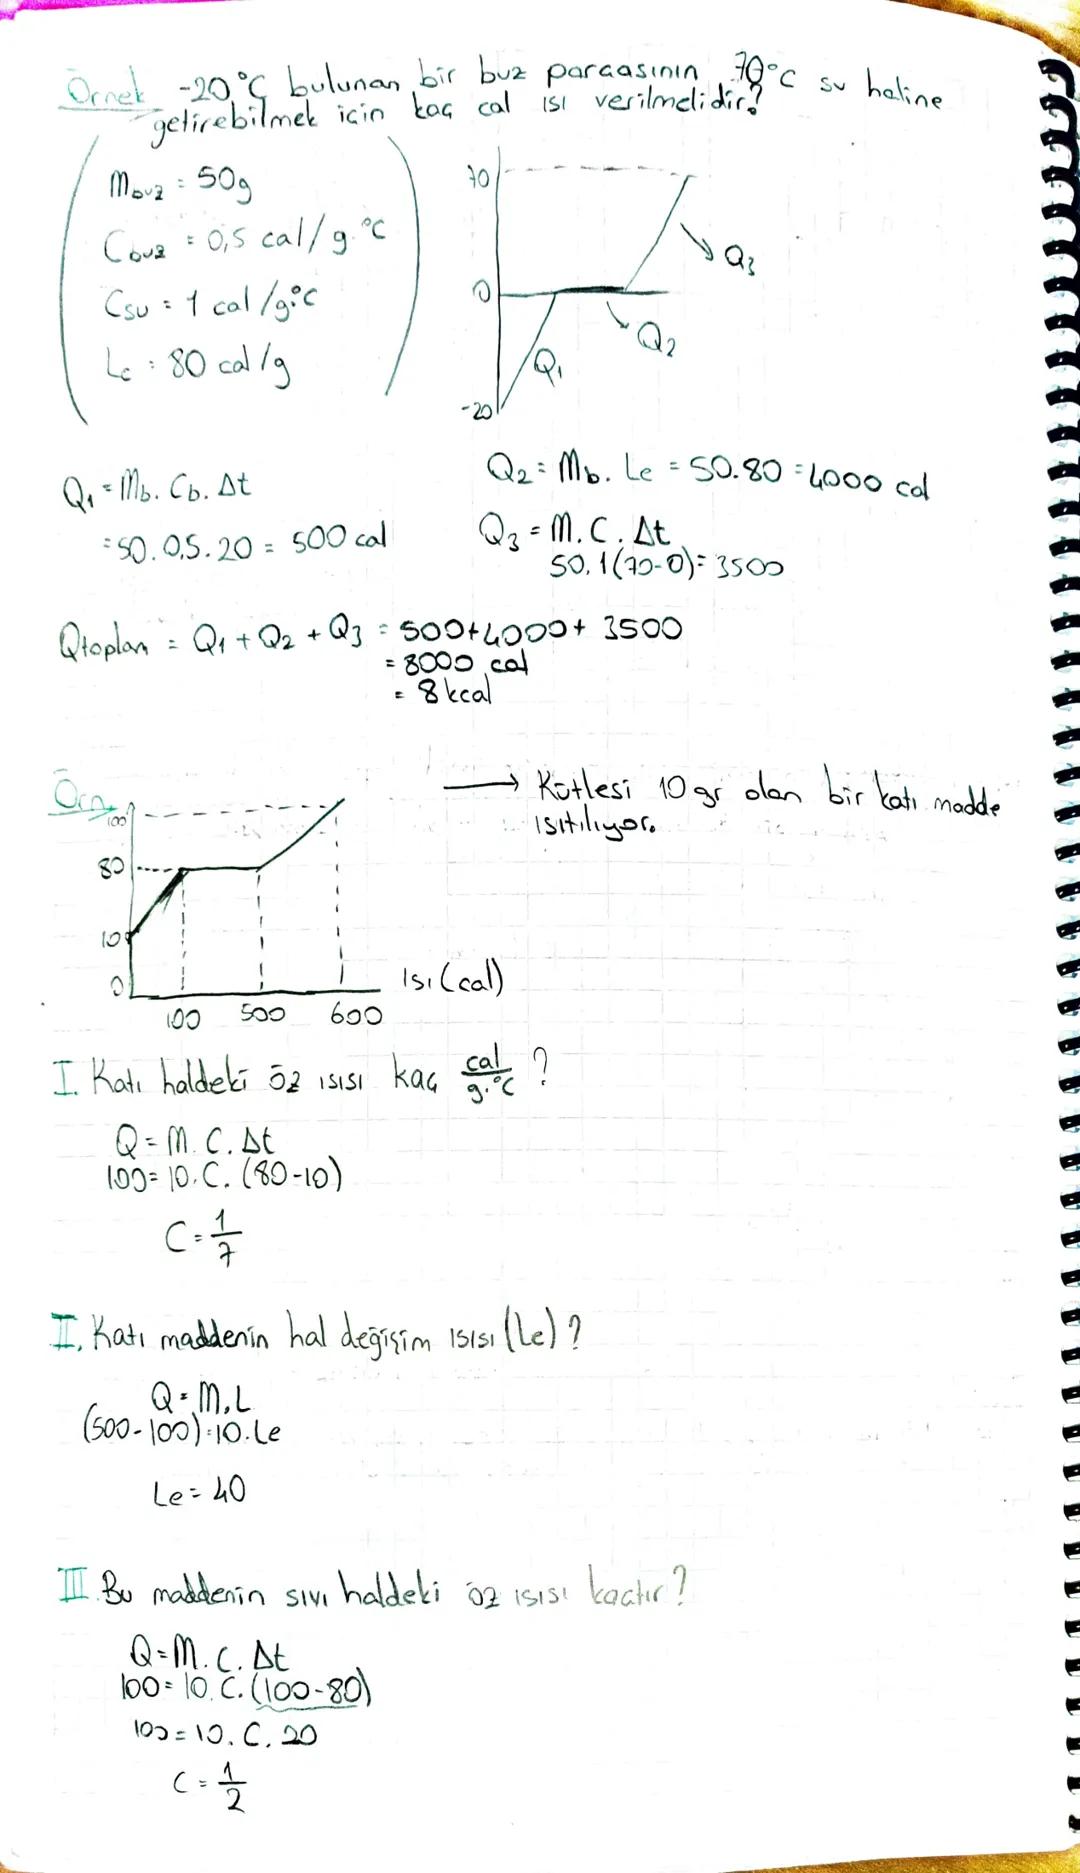 Örnek -20°C bulunan bir buz parçasının 70°C su haline
getirebilmek için kaç cal ısı verilmelidir?
Mbuz = 50g
Cbuz = 0,5 cal/g.°C
Csu = 1 cal/g.°C
Le : 80 cal/g
70
0
-20
Q1
Q2
Q3
Q1 = Mb. Cb. Δt
= 50. 0,5. 20 = 500 cal
Q2 = Mb. Le = 50.80 = 4000 cal
Q3 = M. C. Δt
50. 1(70-0) = 3500
Qtoplan = Q1 + Q2 + Q3 = 500+4000+ 3500
= 8000 cal
= 8 kcal
Örn
→ Kütlesi 10 gr olan bir katı madde
ısıtılıyor.
100
80
10
0
100 500 600
Isı (cal)
I. Katı haldeki öz ısısı kaç cal/g.°C ?
Q = M. C. Δt
100= 10. C. (80-10)
C = 1/7
II. Katı maddenin hal değişim ısısı (Le) ?
Q = M.L
(500-100) = 10. Le
Le = 40
III. Bu maddenin sıvı haldeki öz ısısı kaçtır?
Q = M. C. Δt
100= 10. C. (100-80)
100 = 10. C. 20
C = 1/2